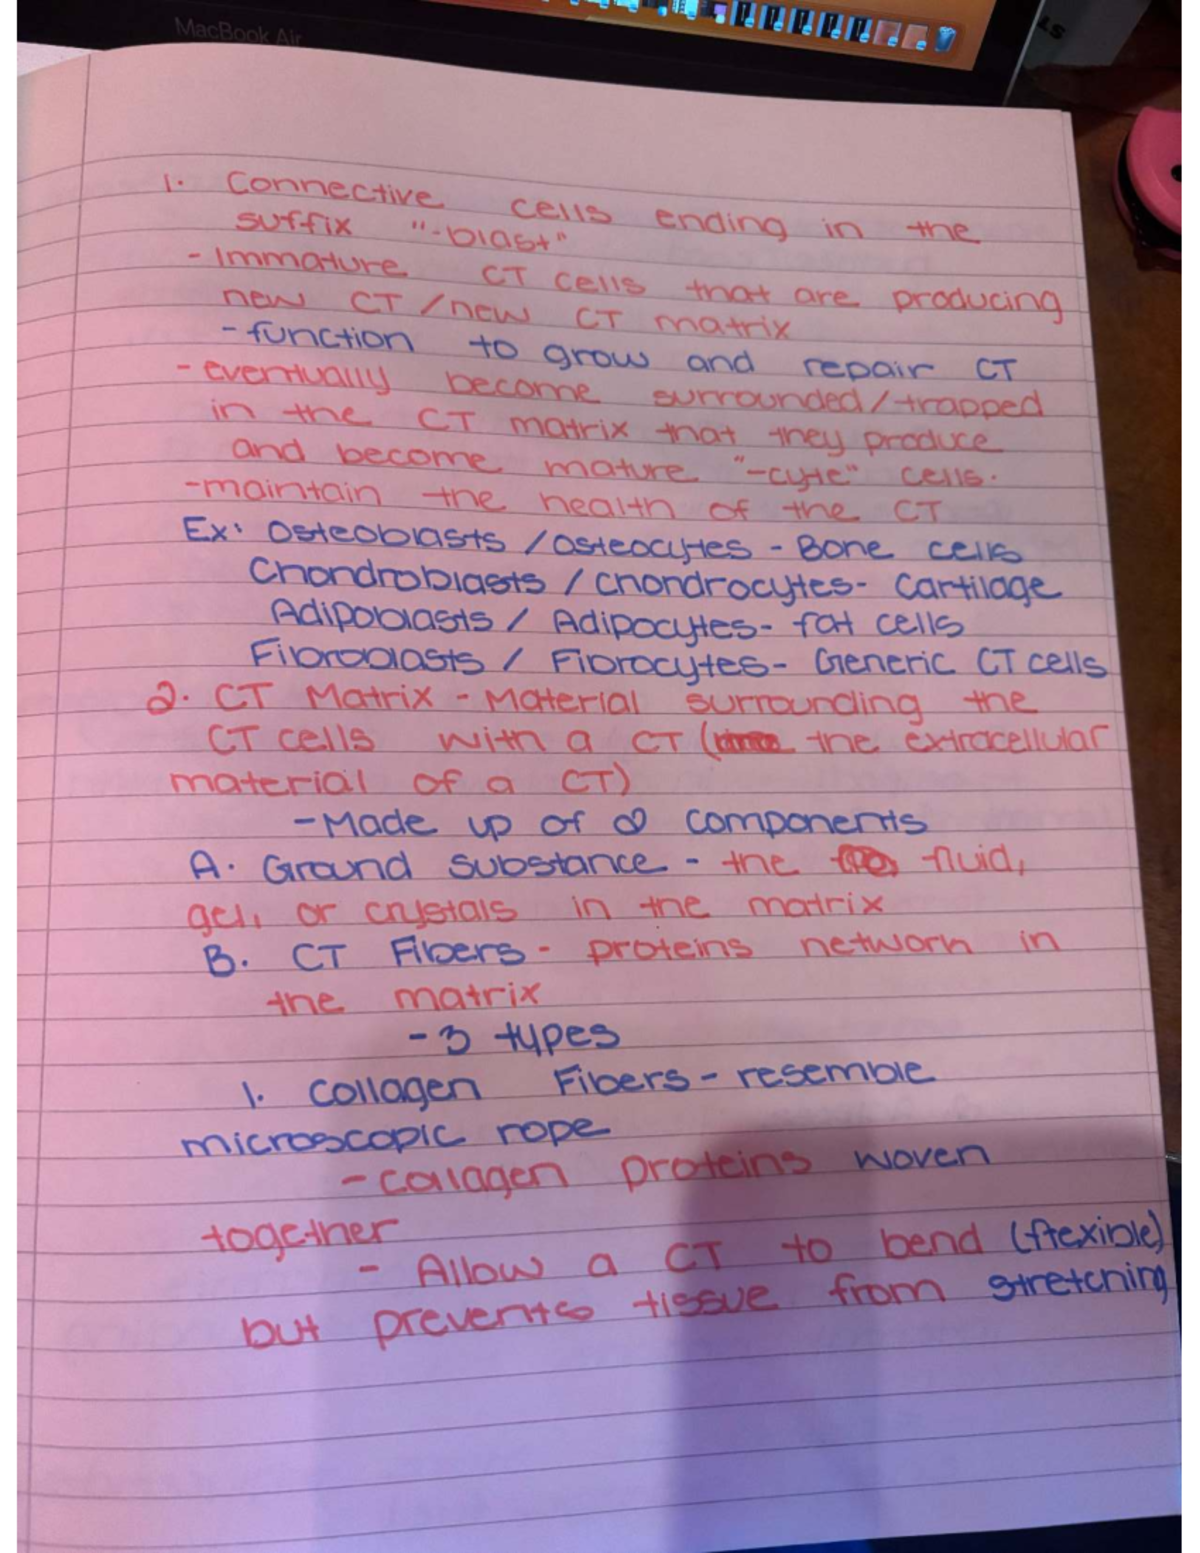 MacBook Air
1. Connective cells ending in the
suffix "-blast"
- Immature CT cells that are producing
new CT/new CT matrix
- function to grow and repair CT
- eventually become surrounded/trapped
in the CT matrix that they produce
and become mature "-cyte" cells.
- maintain the health of the CT
Ex: Osteoblasts / osteocytes - Bone cells
Chondroblasts / Chondrocytes - Cartilage
Adipoblasts / Adipocytes - fat cells
Fibroblasts / Fibrocytes - Generic CT cells
2. CT Matrix - Material surrounding the
CT cells with a CT ( the extracellular
material of a CT)
- Made up of ∞ components
A. Ground substance - the fluid,
gel, or crystals in the matrix
B. CT Fibers - proteins network in
the matrix
- 3 types
1. Collagen Fibers - resemble
microscopic rope
- collagen proteins woven
together
- Allow a CT to bend (flexible)
but prevents tissue from stretching